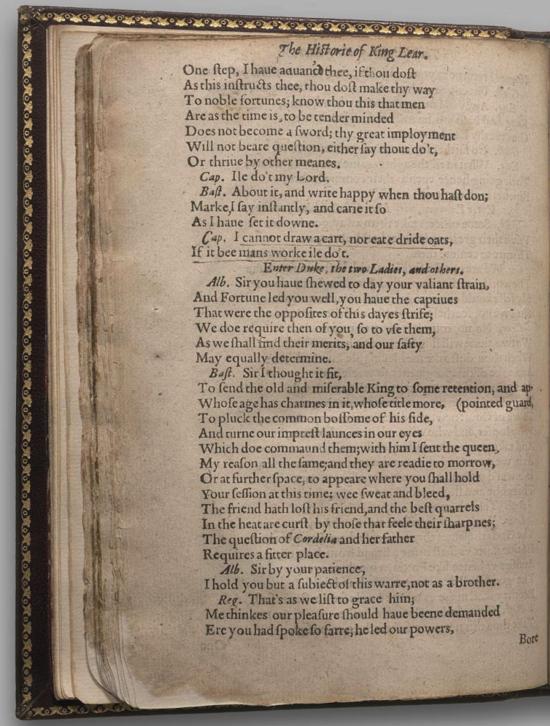 The Historie of King Lear.
One step, I haue aduancd thee, if thou dost
As this instructs thee, thou dost make thy way
To noble fortunes; know thou this that men
Are as the time is, to be tender minded
Does not become a sword; thy great imployment
Will not beare question, either say thout do't,
Or thriue by other meanes.
Cap. Ile do't my Lord.
Bast. About it, and write happy when thou hast don;
Marke I say instantly, and carie it so
As I haue set it downe.
Cap. I cannot draw a cart, nor eate dride oats,
If it bee mans worke ile do't.
Enter Duke, the two Ladies, and others.
Alb. Sir you haue shewed to day your valiant strain,
And Fortune led you well, you haue the captiues
That were the opposites of this dayes strife;
We doe require then of you, so to vse them,
As we shall find their merits, and our safty
May equally determine.
Bast. Sir I thought it fit,
To send the old and miserable King to some retention, and ap-
Whose age has charmes in it, whose title more, (pointed guard,
To pluck the common bossome of his side,
And turne our imprest launces in our eyes
Which doe commaund them; with him I sent the queen,
My reason all the same; and they are readie to morrow,
Or at further space, to appeare where you shall hold
Your session at this time: wee sweat and bleed,
The friend hath lost his friend, and the best quarrels
In the heat are curst by those that feele their sharpnes;
The question of Cordelia and her father
Requires a fitter place.
Alb. Sir by your patience,
I hold you but a subiect of this warre, not as a brother.
Reg. That's as we list to grace him;
Me thinkes our pleasure should haue beene demanded
Ere you had spoke so farre; he led our powers,
Bore